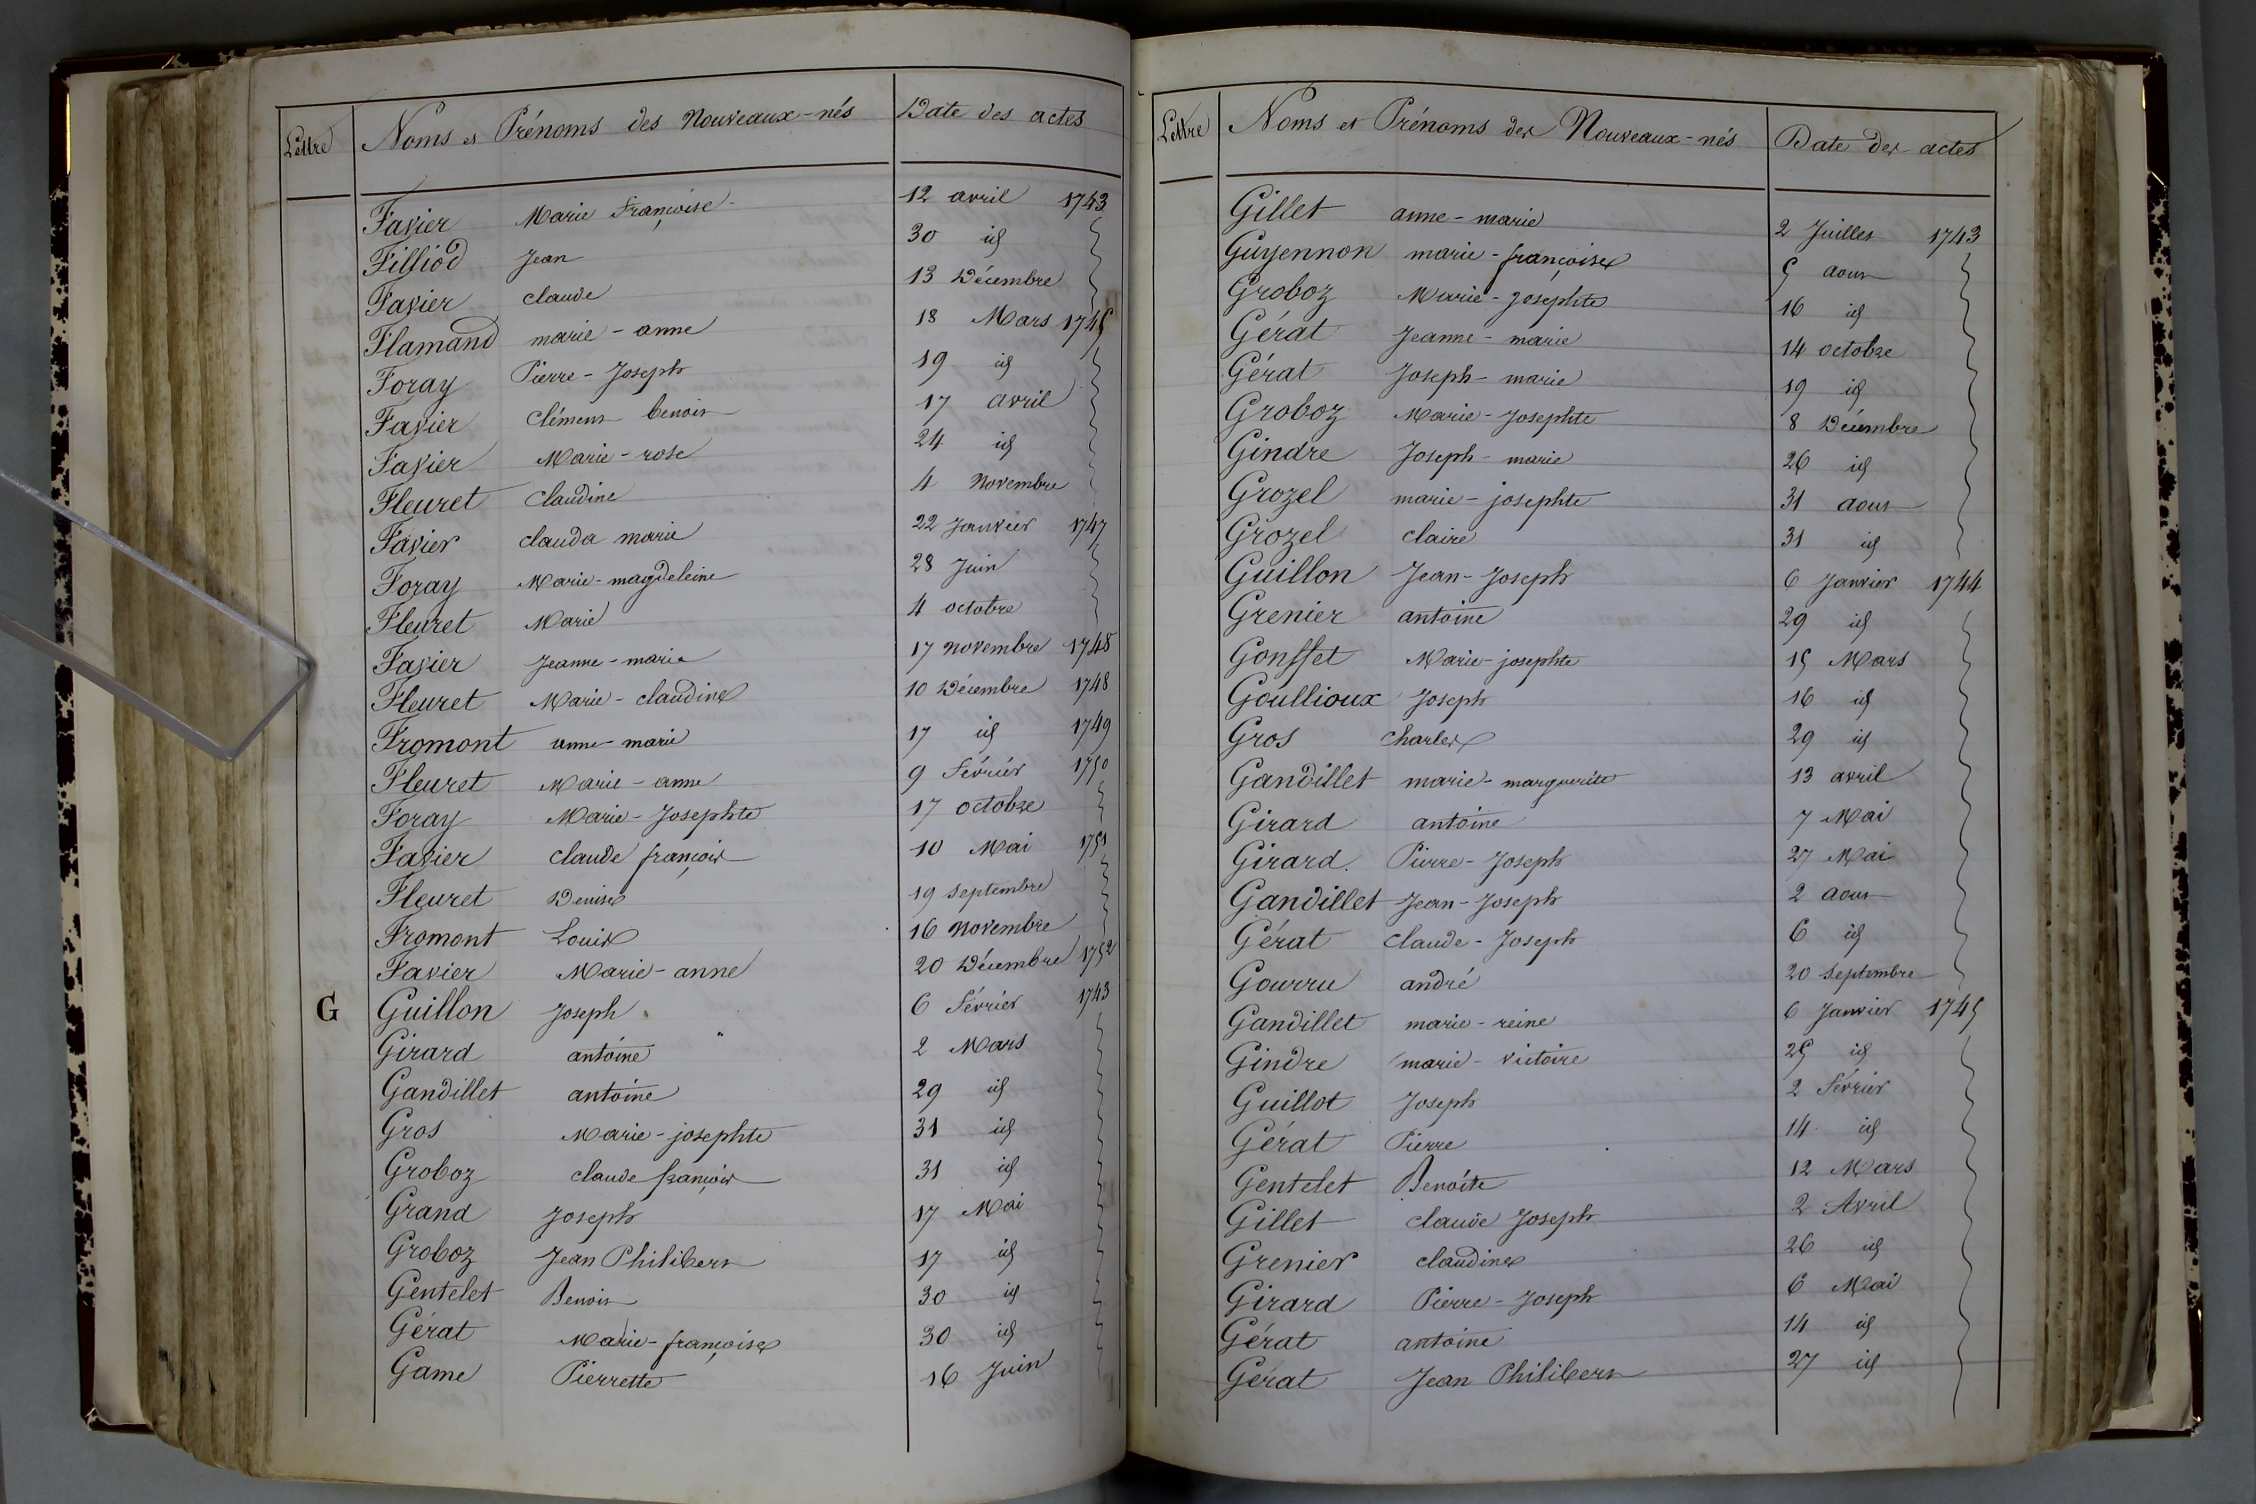 Lettre Noms et Prénoms des Nouveaux-nés Date des actes
Favier Marie Françoise 12 avril 1743
Filliod Jean 30 id
Favier claude 13 Décembre
Flamand marie-anne 18 Mars 1745
Foray Pierre-Joseph 19 id
Favier Clément benoit 17 avril
Favier Marie-rose 24 id
Fleuret Claudine 4 Novembre
Favier clauda marie 22 Janvier 1747
Foray Marie-magdeleine 28 Juin
Fleuret Marie 4 octobre
Favier Jeanne-marie 17 novembre 1748
Fleuret Marie-claudine 10 Décembre 1748
Fromont anne-marie 17 id 1749
Fleuret Marie-anne 9 Février 1750
Foray Marie-Josephte 17 octobre
Favier Claude françois 10 Mai 1751
Fleuret Denise 19 septembre
Fromont Louis 16 novembre
Favier Marie-anne 20 Décembre 1752
G Guillon Joseph 6 Février 1743
Girard antoine 2 Mars
Gandillet antoine 29 id
Gros Marie-josephte 31 id
Groboz claude françois 31 id
Grand Joseph 17 Mai
Groboz Jean Philibert 17 id
Gentelet Benoit 30 id
Gérat Marie-françoise 30 id
Game Pierrette 16 Juin
Lettre Noms et Prénoms des Nouveaux-nés Date des actes
Gillet anne-marie 2 Juillet 1743
Guyennon marie-françoise 5 aout
Groboz Marie-Josephte 16 id
Gérat Jeanne-marie 14 octobre
Gérat Joseph-marie 19 id
Groboz Marie-Josephte 8 Décembre
Gindre Joseph-marie 26 id
Grozel marie-josephte 31 aout
Grozel claire 31 id
Guillon Jean-Joseph 6 Janvier 1744
Grenier antoine 29 id
Gonffet Marie-josephte 15 Mars
Goullioux Joseph 16 id
Gros Charles 29 id
Gandillet marie-marguerite 13 avril
Girard antoine 7 Mai
Girard. Pierre-Joseph 27 Mai
Gandillet Jean-Joseph 2 aout
Gérat Claude-Joseph 6 id
Gourru andré 20 septembre
Gandillet marie-reine 6 Janvier 1745
Gindre marie-victoire 25 id
Guillot Joseph 2 Février
Gérat Pierre 14 id
Gentelet Benoîte 12 Mars
Gillet claude Joseph 2 Avril
Grenier claudine 26 id
Girard Pierre-Joseph 6 Mai
Gérat antoine 14 id
Gérat Jean Philibert 27 id